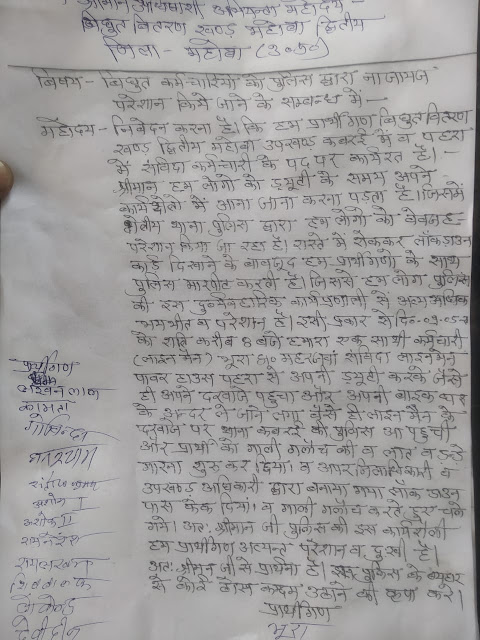 श्रीमान अधिशाषी अभियन्ता महोदय -
विद्युत वितरण खण्ड महोबा द्वितीय
जिला - महोबा (उ०प्र०)
विषय - विद्युत कर्मचारियों को पुलिस द्वारा नाजायज
परेशान किये जाने के सम्बन्ध में -
महोदय - निवेदन करना है। कि हम प्रार्थीगण विद्युत वितरण
खण्ड द्वितीय महोबा उपखण्ड कबरई में व पहरा
में संविदा कर्मचारी के पद पर कार्यरत है।
श्रीमान हम लोगो को ड्यूटी के समय अपने
कार्य क्षेत्रो में आना जाना करना पड़ता है। जिसमें
क्षेत्रीय थाना पुलिस द्वारा हम लोगों को बेवजह
परेशान किया जा रहा है। रास्ते में रोककर लॉकडाउन
कार्ड दिखाने के बावजूद हम प्रार्थीगणो के साथ
पुलिस मारपीट करती है। जिससे हम लोग पुलिस
की इस दुर्व्यवहारिक कार्यप्रणाली से अत्यधिक
भयभीत व परेशान है। इसी प्रकार से दि०-
को रात्रि करीब 8 बजे हमारा एक साथी कर्मचारी
(लाइन मैन) भूरा संविदा लाइनमैन
पावर हाउस पहरा से अपनी ड्यूटी करके जैसे
ही अपने दरवाजे पहुंचा और अपनी बाइक घर
के अन्दर ले जाने लगा वैसे ही लाइन मैन के
दरवाजे पर थाना कबरई की पुलिस आ पहुंची
और प्रार्थी को गाली गलौच की व लात व डन्डे
मारना शुरू कर दिया। व अपर जिलाधिकारी व
उपखण्ड अधिकारी द्वारा बनाया गया लॉक डाउन
पास फेंक दिया। व गाली गलौच करते हुए चले
गये। अतः श्रीमान जी पुलिस की इस कार्यशैली
हम प्रार्थीगण अत्यन्त परेशान व दुखी है।
अतः श्रीमान जी से प्रार्थना है। पुलिस के
के कोई ठोस कदम उठाने की कृपा करें।
प्रार्थीगण
भूरा
प्रार्थीगण
कामता
गोविन्दा
घनश्याम
अशोक I
अशोक II
रामनरेश
रामलखन
देवीदीन